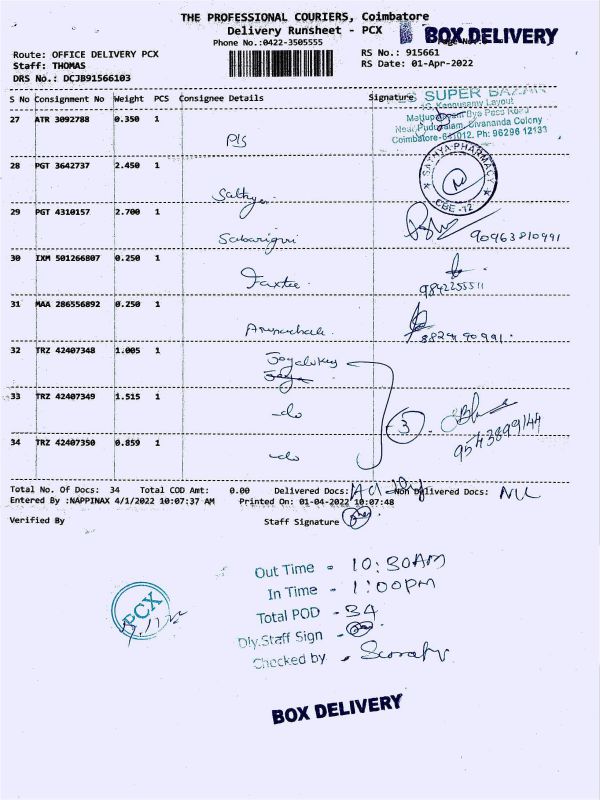 THE PROFESSIONAL COURIERS, Coimbatore
Delivery Runsheet - PCX
Phone No.:0422-3505555
BOX DELIVERY
Route: OFFICE DELIVERY PCX
Staff: THOMAS
DRS No.: DCJB91566103
RS No.: 915661
RS Date: 01-Apr-2022
S No Consignment No Weight PCS Consignee Details Signature
SUPER BAZAAR
Layout
Sivananda Colony
Coimbatore-641012. Ph: 96296 12133
27 ATR 3092788 0.350 1
P/S
28 PGT 3642737 2.450 1
Sathya
SATHYA PHARMACY
CBE - 12
29 PGT 4310157 2.700 1
Sabarigiri
90963810991
30 IXM 501266807 0.250 1
9842255511
31 MAA 286556892 0.250 1
Arunachala
32 TRZ 42407348 1.005 1
33 TRZ 42407349 1.515 1
-do
3
34 TRZ 42407350 0.859 1
-do
9543899144
Total No. Of Docs: 34 Total COD Amt: 0.00 Delivered Docs: Non Delivered Docs: NIL
Entered By :NAPPINAX 4/1/2022 10:07:37 AM Printed On: 01-04-2022 10:07:48
Verified By Staff Signature
Out Time - 10:30AM
In Time - 1:00pm
Total POD - 34
Dly.Staff Sign -
Checked by -
PCX
BOX DELIVERY